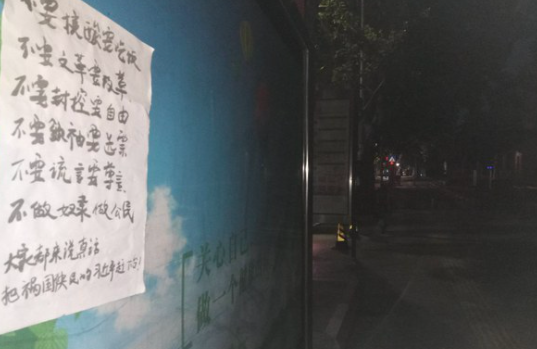 不要核酸要吃饭
不要文革要改革
不要封控要自由
不要领袖要选票
不要谎言要尊严
不做奴隶做公民
大家都来说真话
把祸国殃民的习近平赶下台!
关心自己
做一个